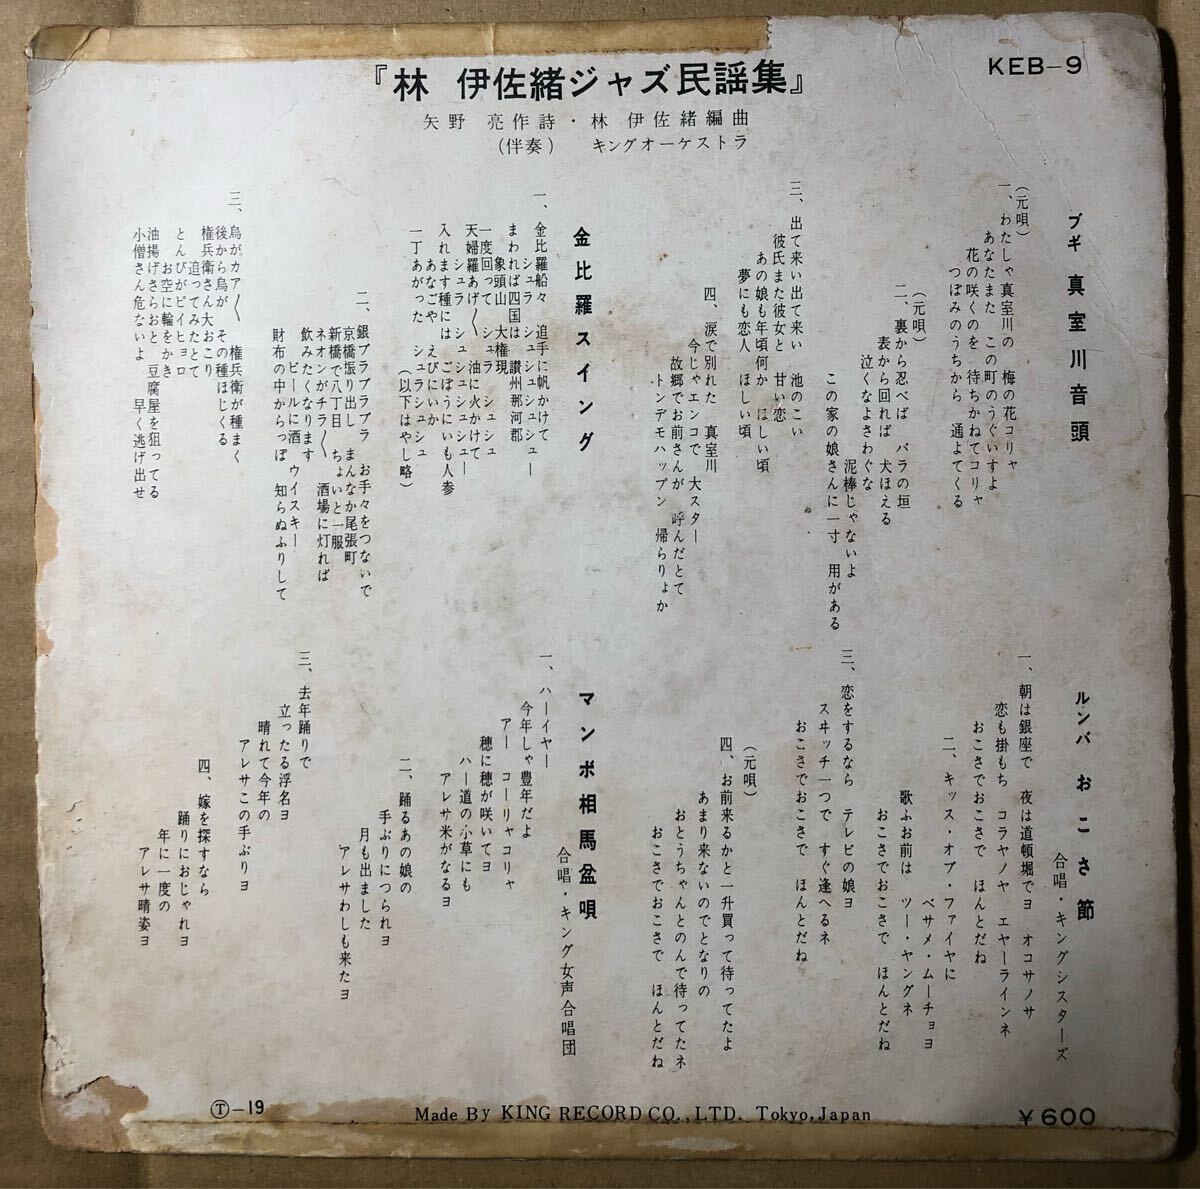 『林 伊佐緒ジャズ民謡集』
KEB-9
矢野 亮作詩・林 伊佐緒編曲
(伴奏) キングオーケストラ
ブギ 真室川音頭
(元唄)
一、わたしゃ真室川の 梅の花コリャ
あなたまた この町のうぐいすよ
花の咲くのを 待ちかねてコリャ
つぼみのうちから 通よてくる
(元唄)
二、裏から忍べば バラの垣
表から回れば 犬ほえる
泣くなよさわぐな
泥棒じゃないよ
この家の娘さんに一寸 用がある
三、出て来い出て来い 池のこい
彼氏また彼女と 甘い恋
あの娘も年頃何か ほしい頃
夢にも恋人 ほしい頃
四、涙で別れた 真室川
今じゃエンコで 大スター
故郷でお前さんが 呼んだとて
トンデモハップン 帰らりょか
金比羅スイング
一、金比羅船々 追手に帆かけて
シュラ シュシュシュシュー
まわれば四国は 讃州那河郡
象頭山 大権現
一度回って シュラ シュシュ
天婦羅あげ〳〵 油に火かけて
シュラ シュシュシュシュー
入れます種には ごぼうにいも人参
あなごや えびにいか
一丁あがった シュラシュシュ
(以下はやし略)
二、銀ブラブラブラ お手々をつないで
京橋振り出し まんなか尾張町
新橋で八丁目 ちょいと一服
ネオンがチラ〳〵 酒場に灯れば
飲みたくなります
ビールに酒 ウイスキー
財布の中からっぽ 知らぬふりして
三、烏がカア〳〵 権兵衛が種まく
後から烏が その種ほじくる
権兵衛さん大おこり
追ってみたとて
とんびがピイヒョロ
お空に輪をかき
油揚げさらおと 豆腐屋を狙ってる
小僧さん危ないよ 早く逃げ出せ
ルンバ おこさ節
合唱・キングシスターズ
一、朝は銀座で 夜は道頓堀でヨ オコサノサ
恋も掛もち コラヤノヤ エヤーラインネ
おこさでおこさで ほんとだね
二、キッス・オブ・ファイヤに
ベサメ・ムーチョヨ
歌ふお前は ツー・ヤングネ
おこさでおこさで ほんとだね
三、恋をするなら テレビの娘ヨ
スヰッチ一つで すぐ逢へるネ
おこさでおこさで ほんとだね
(元唄)
四、お前来るかと一升買って待ってたよ
あまり来ないのでとなりの
おとうちゃんとのんで待ってたネ
おこさでおこさで ほんとだね
マンボ相馬盆唄
合唱・キング女声合唱団
一、ハーイヤー
今年しゃ豊年だよ
アー コーリャコリャ
穂に穂が咲いてヨ
ハー道の小草にも
アレサ米がなるヨ
二、踊るあの娘の
手ぶりにつられヨ
月も出ました
アレサわしも来たヨ
三、去年踊りで
立ったる浮名ヨ
晴れて今年の
アレサこの手ぶりヨ
四、嫁を探すなら
踊りにおじゃれヨ
年に一度の
アレサ晴姿ヨ
Ⓣ-19
Made By KING RECORD CO.,LTD. Tokyo,Japan
¥600